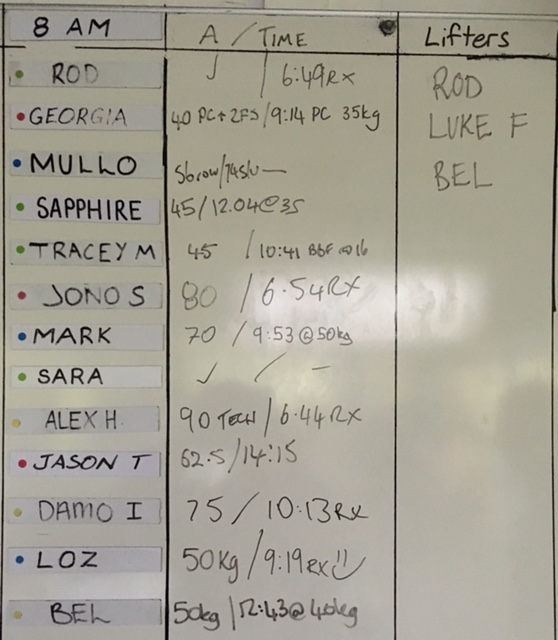 8 AM A / TIME Lifters
ROD ✓ / 6:49 Rx ROD
GEORGIA 40 PC+2FS / 9:14 PC 35kg LUKE F
MULLO BEL
SAPPHIRE 45 / 12.04@35
TRACEY M 45 / 10:41 @16
JONO S 80 / 6.54 RX
MARK 70 / 9:53 @50kg
SARA ✓ / –
ALEX H 90 TECH / 6.44 RX
JASON T 62.5 / 14:15
DAMO I 75 / 10:13 Rx
LOZ 50Kg / 9:19 RX
BEL 50kg / 12:43@40kg